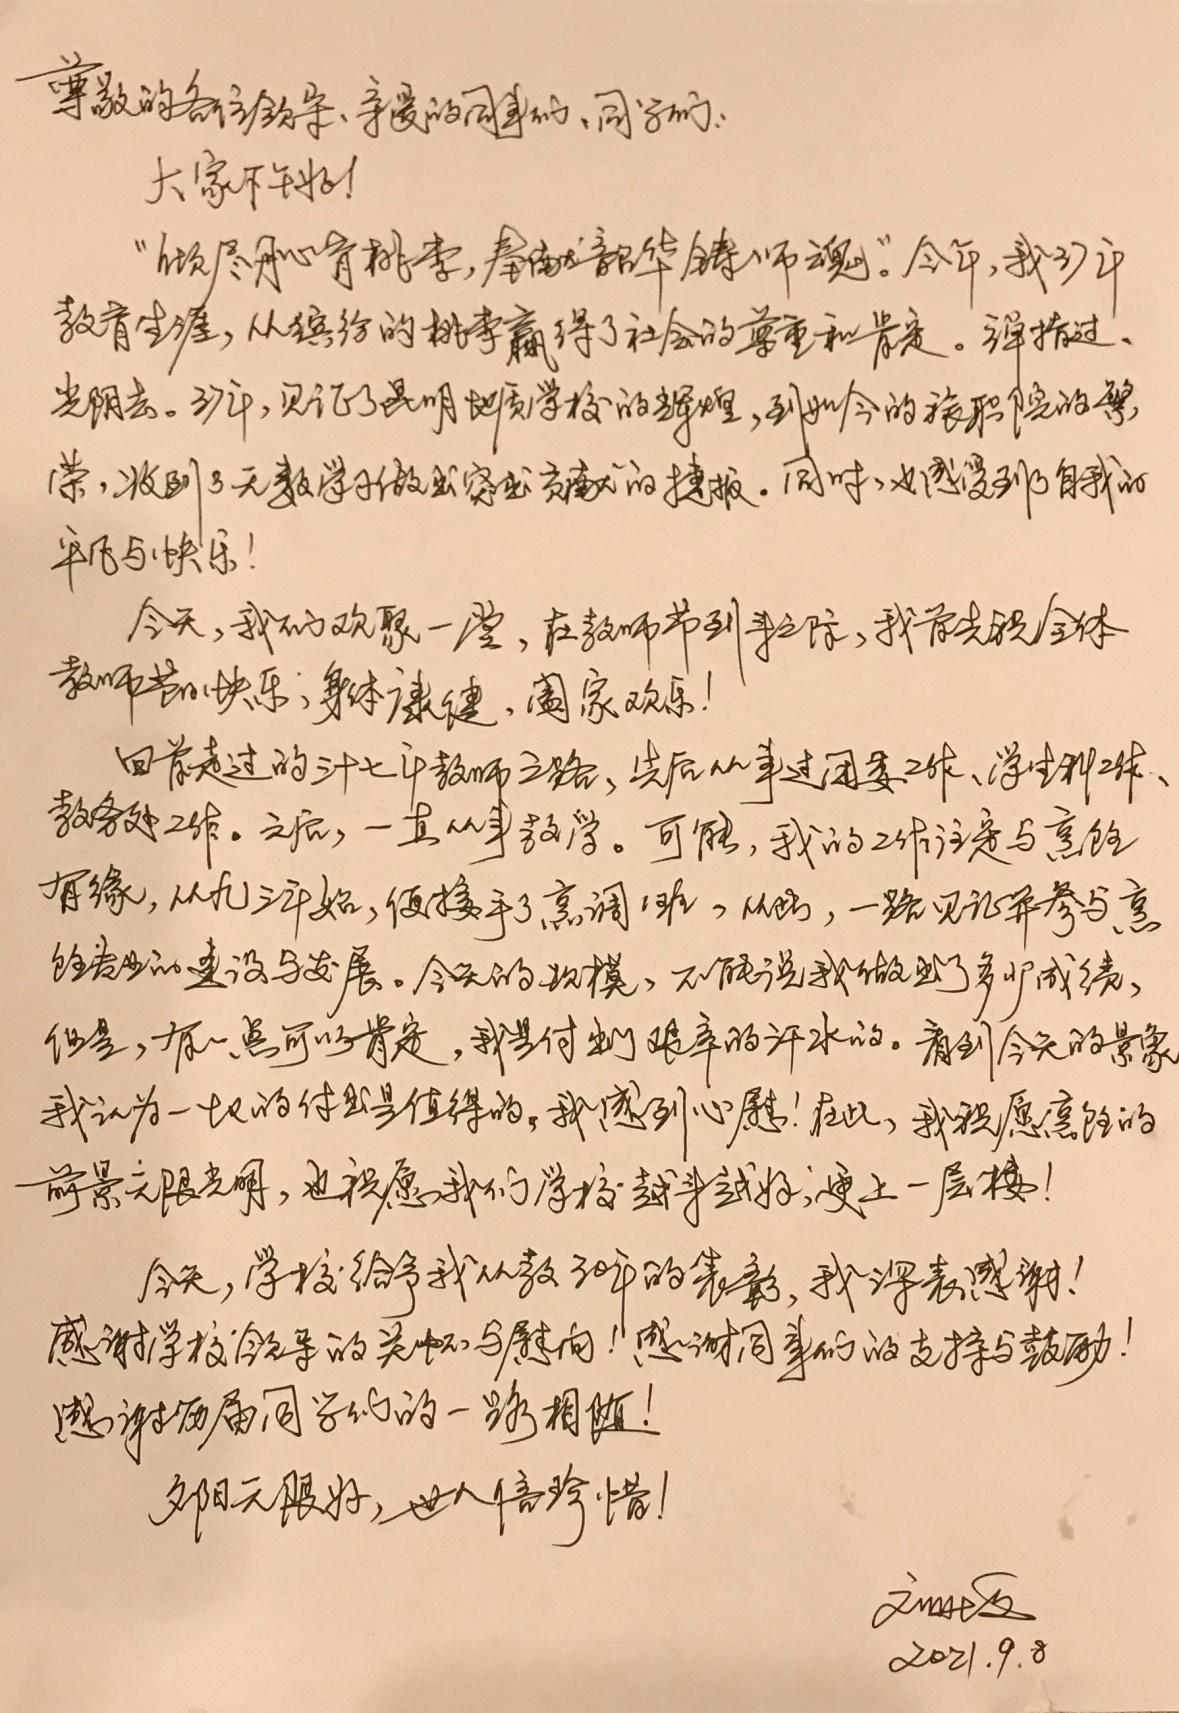 尊敬的各位领导、亲爱的同事们、同学们:
大家下午好!
“倾尽丹心育桃李,奉献韶华铸师魂”。今年,我37年
教育生涯,从缤纷的桃李赢得了社会的尊重和肯定。弹指过、
光阴去。37年,见证了昆明地质学校的辉煌,到如今的旅职院的繁
荣,收到了无数学子做出突出贡献的捷报。同时,也感受到了自我的
平凡与快乐!
今天,我们欢聚一堂,在教师节到来之际,我首先祝全体
教师节日快乐,身体康健,阖家欢乐!
回首走过的三十七年教师之路,先后从事过团委工作、学生科工作、
教务处工作。之后,一直从事教学。可能,我的工作注定与烹饪
有缘,从九三年始,便接手了烹调班,从此,一路见证并参与烹
饪专业的建设与发展。今天的规模,不能说我做出了多少成绩,
但是,有一点可以肯定,我是付出了艰辛的汗水的。看到今天的景象
我认为一切的付出是值得的,我感到心慰!在此,我祝愿烹饪的
前景无限光明,也祝愿我们学校越来越好,更上一层楼!
今天,学校给予我从教30年的表彰,我深表感谢!
感谢学校领导的关怀与慰问!感谢同事们的支持与鼓励!
感谢历届同学们的一路相随!
夕阳无限好,世人倍珍惜!
2021.9.8